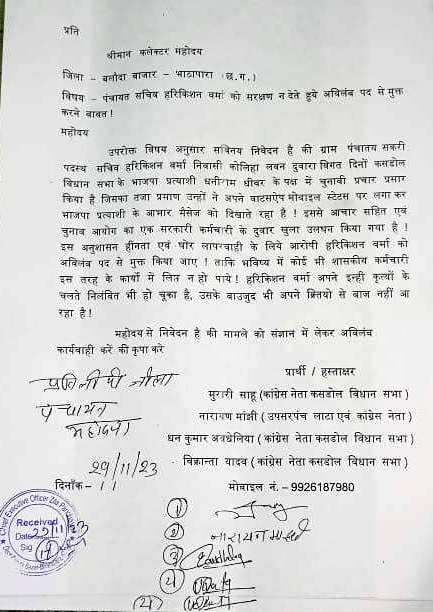 प्रति
श्रीमान कलेक्टर महोदय
जिला – बलौदा बाजार – भाठापारा (छ.ग.)
विषय – पंचायत सचिव हरिकिशन वर्मा को सरक्षण न देते हुये अविलंब पद से मुक्त
करने बावत!
महोदय
उपरोक्त विषय अनुसार सविनय निवेदन है की ग्राम पंचातय सकरी
पदस्थ सचिव हरिकिशन वर्मा निवासी कोलिहा लवन दुवारा विगत दिनों कसडोल
विधान सभा के भाजपा प्रत्याशी धनीराम धीवर के पक्ष में चुनावी प्रचार प्रसार
किया है जिसका तजा प्रमाण उन्होंने ने अपने वाटसऐप मोबाइल स्टेटस पर लगा कर
भाजपा प्रत्याशी के आभार मैसेज को दिखाते रहा है ! इससे आचार सहित एवं
चुनाव आयोग का एक सरकारी कर्मचारी के दुवार खुला उलघन किया गया है !
इस अनुशासन हीनता एवं घोर लापरवाही के लिये आरोपी हरिकिशन वर्मा को
अविलंब पद से मुक्त किया जाए ! ताकि भविष्य में कोई भी शासकीय कर्मचारी
इस तरह के कार्यो में लिप्त न हो पाये ! हरिकिशन वर्मा अपने इन्ही कृत्यों के
चलते निलंबित भी हो चुका है, उसके बाउजुद भी अपने क्रितयो से बाज नहीं आ
रहा है !
महोदय से निवेदन है की मामले को संज्ञान में लेकर अविलंब
कार्यवाही करें की कृपा करे
प्रार्थी / हस्ताक्षर
मुरारी साहू (कांग्रेस नेता कसडोल विधान सभा )
नारायण मांझी ( उपसरपंच लाटा एवं कांग्रेस नेता )
धन कुमार अवधेलिया ( कांग्रेस नेता कसडोल विधान सभा )
विक्रान्ता यादव ( कांग्रेस नेता कसडोल विधान सभा )
मोबाइल नं. – 9926187980
पंचायत
महोदय
29/11/23
दिनाँक –
Chief Executive Officer Zila
Received
Date 29/11/23
Sig
1
2
3
4